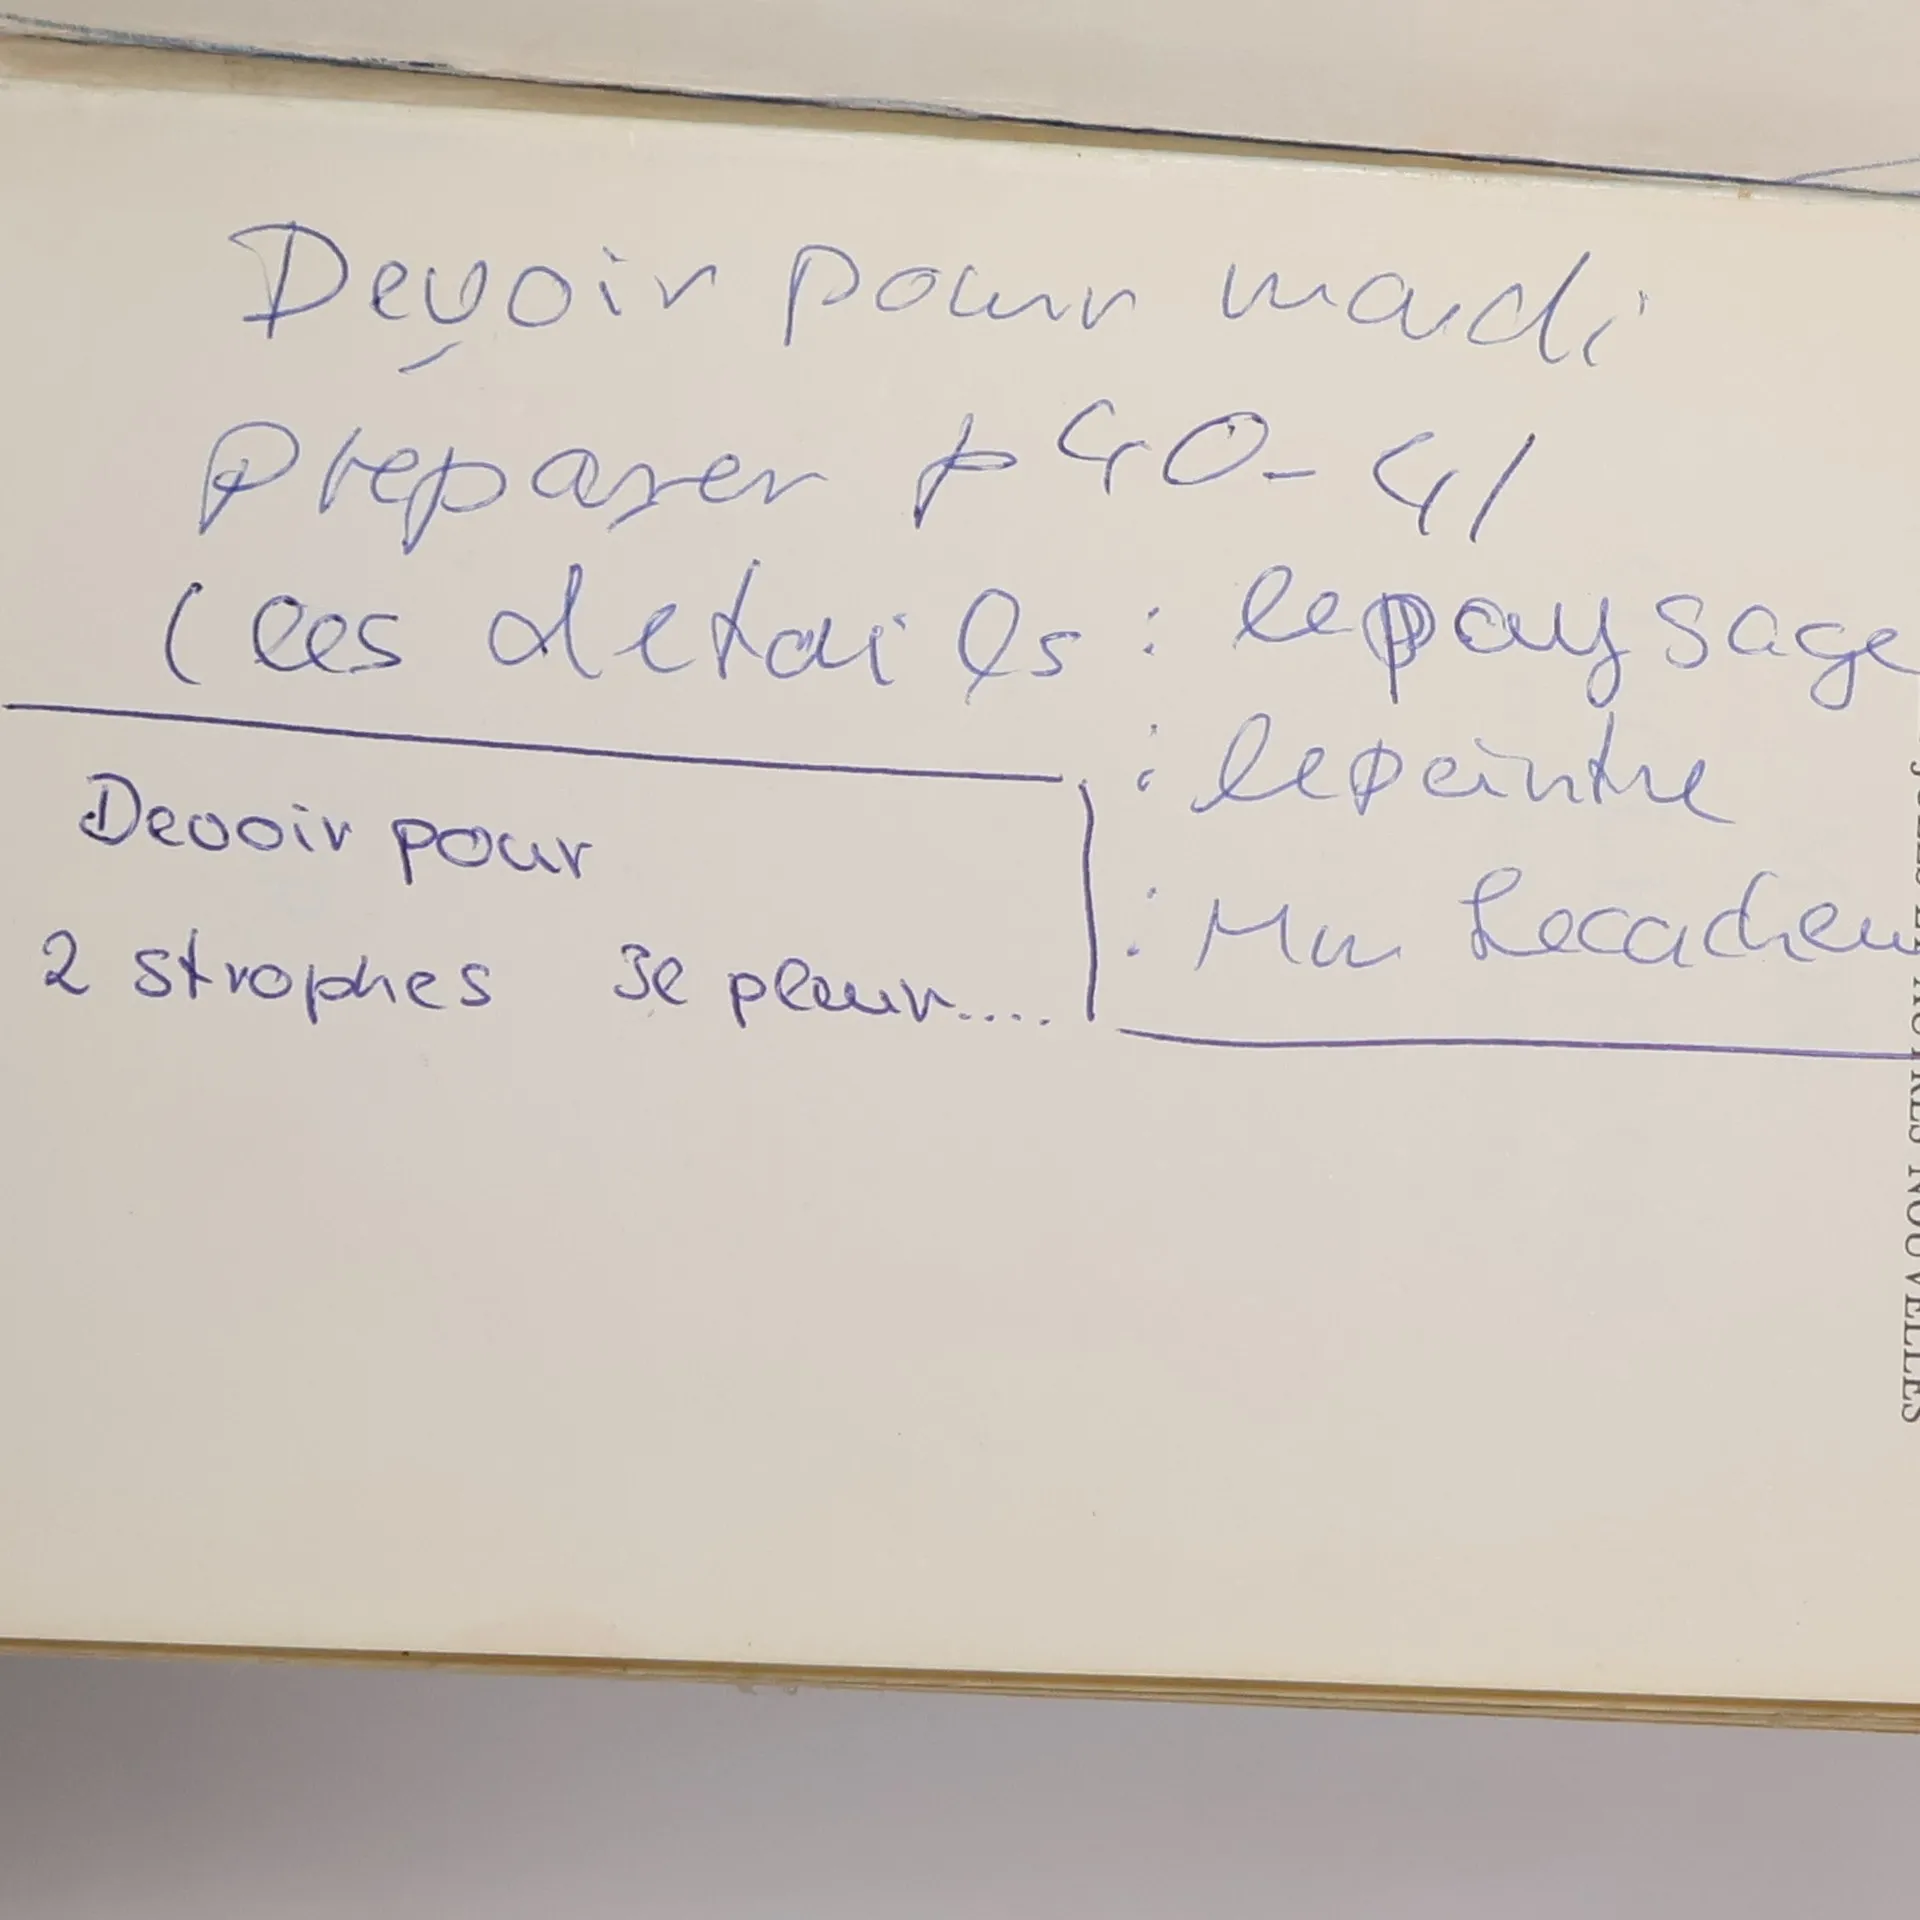 Devoir pour mardi
préparer p 40-41
(les details : le paysage
: le peintre
: Mm Lecacheu
Devoir pour
2 strophes Je pleur.....
AUTRES NOUVELLES